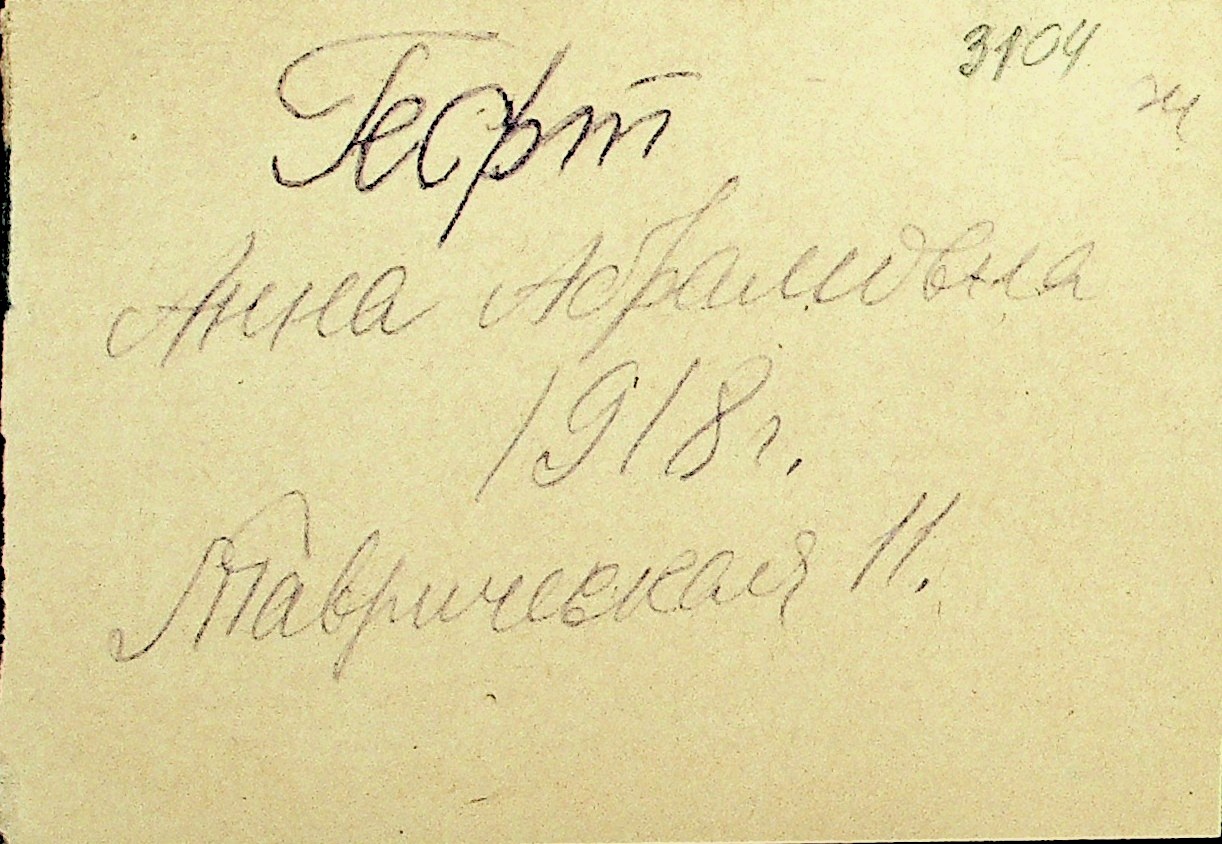 3104
ж
Гефт
Анна Абрамовна
1918 г.
Таврическая 11.